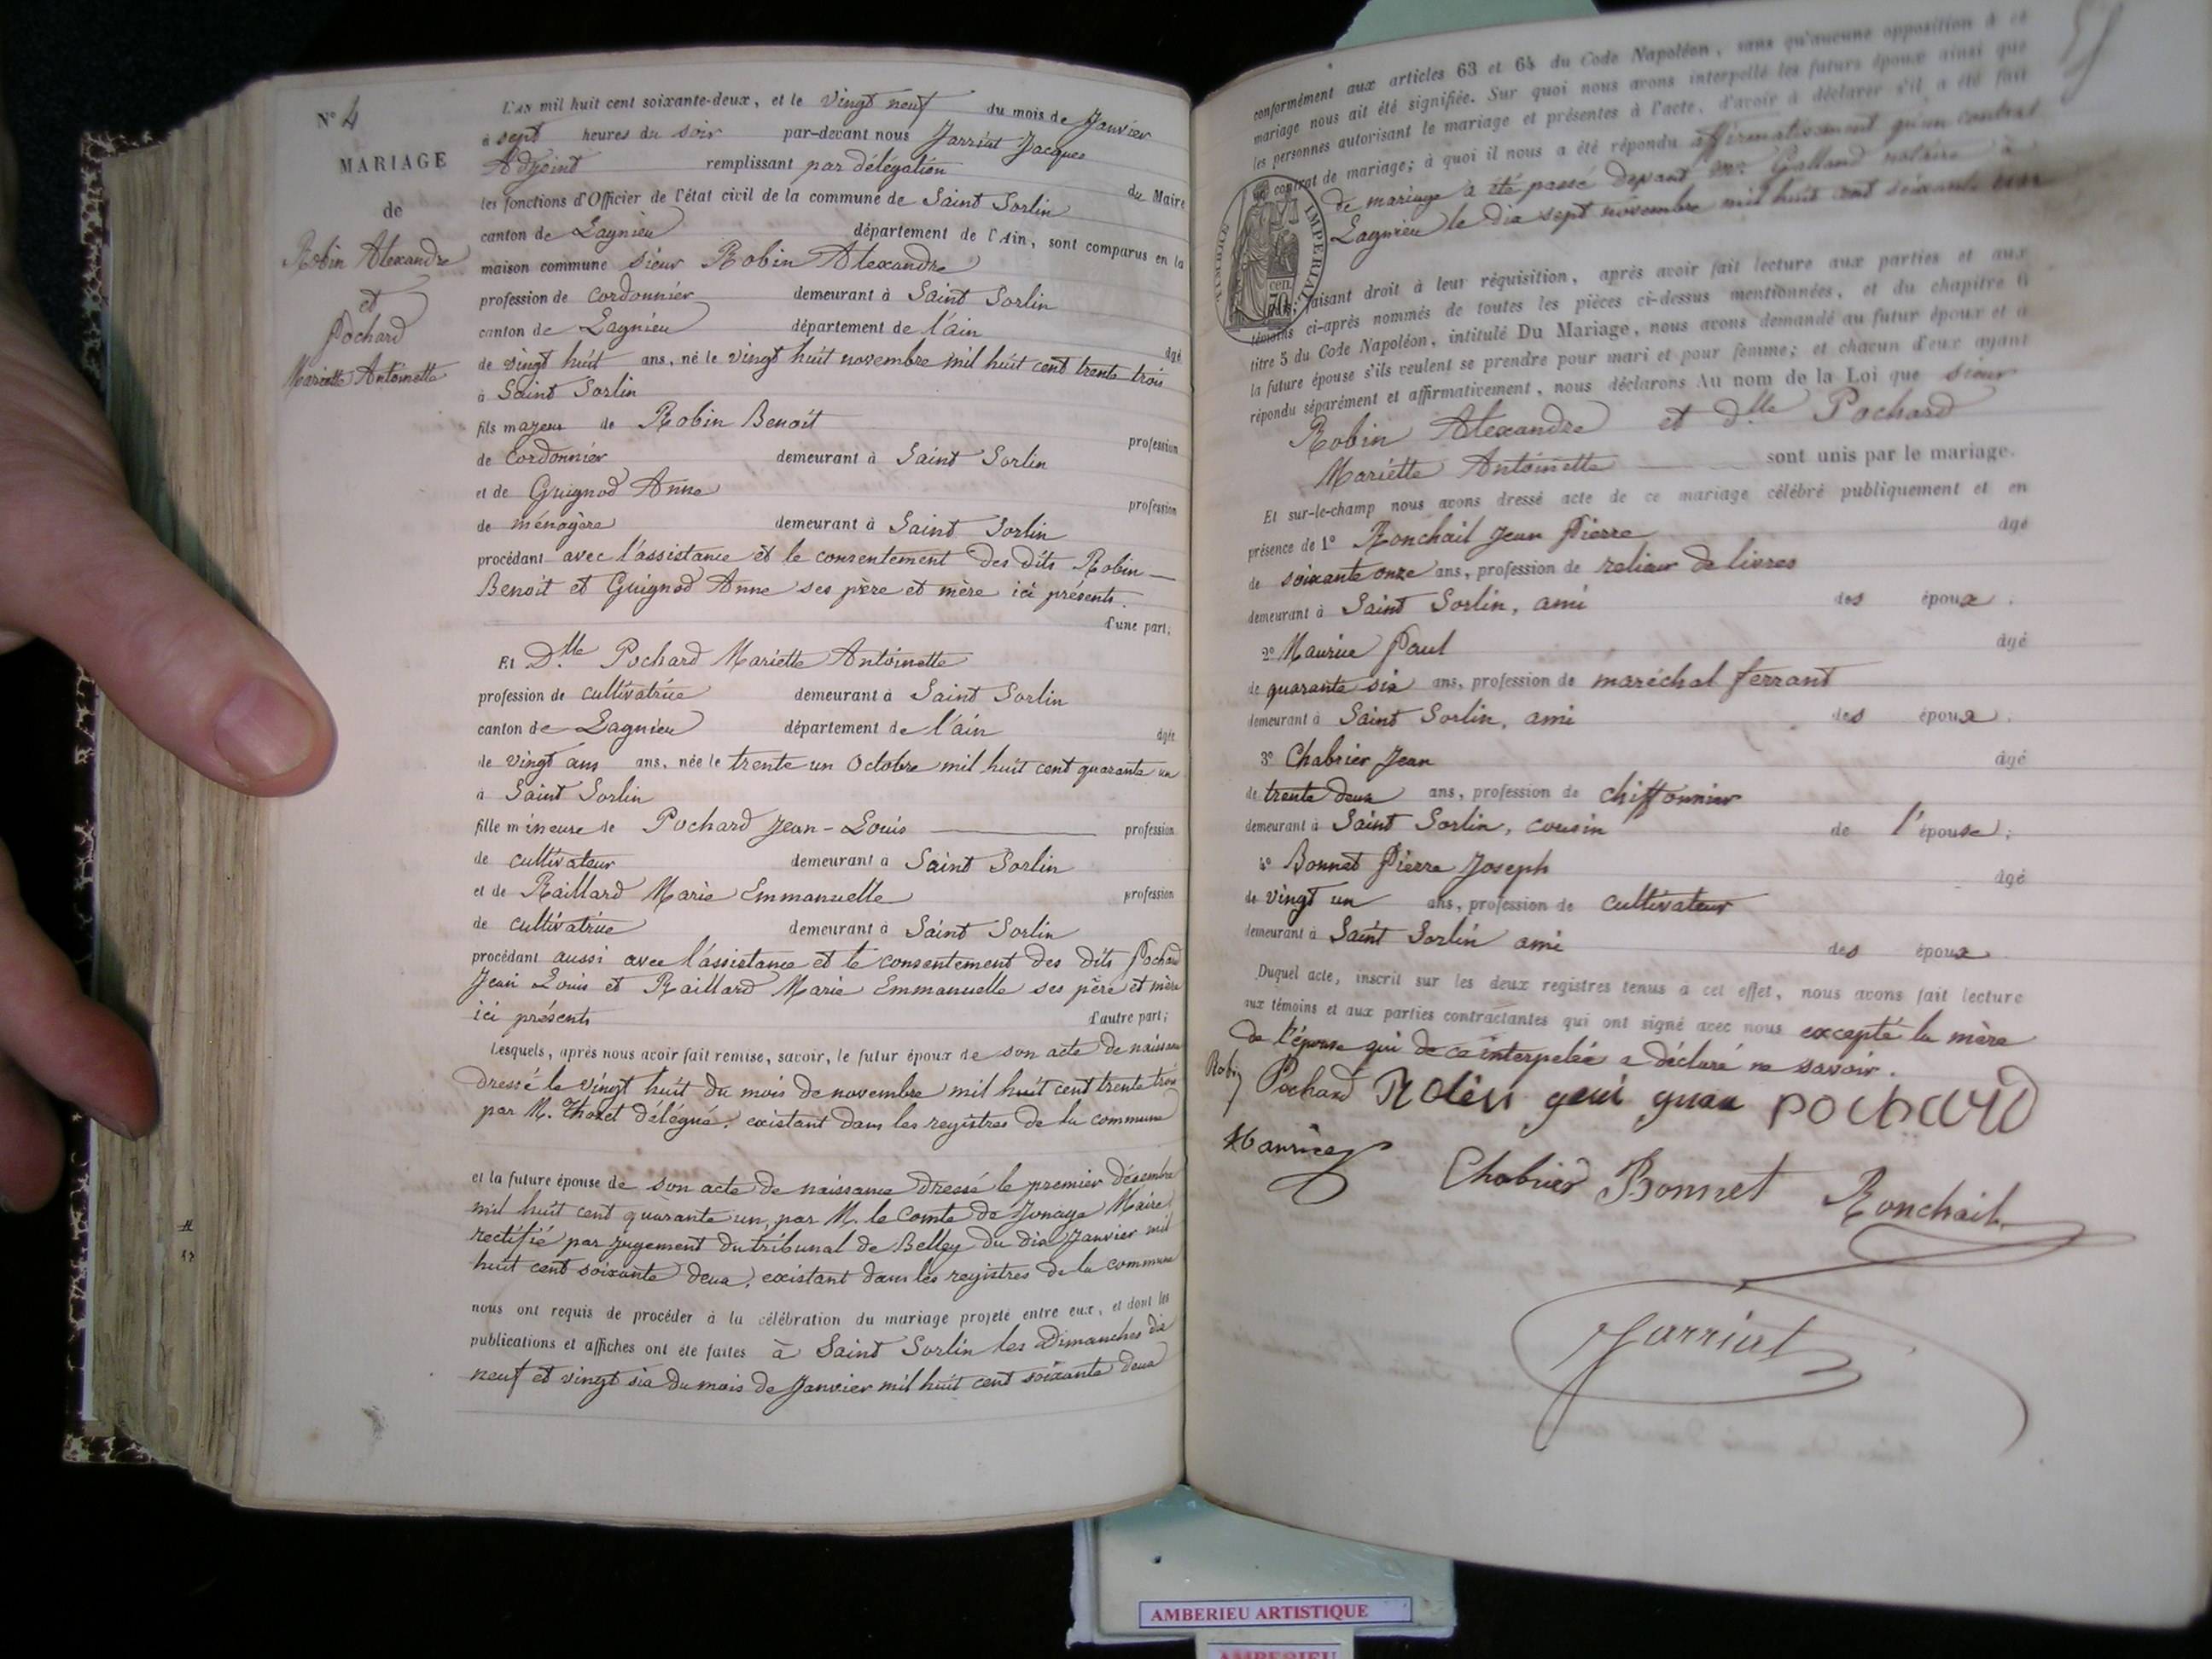 N° 4
MARIAGE
de
Robin Alexandre
et
Pochard
Mariette Antoinette
L'AN mil huit cent soixante-deux, et le vingt neuf du mois de Janvier
à sept heures du soir par-devant nous Jarriat Jacques
Adjoint remplissant par délégation du Maire
les fonctions d'Officier de l'état civil de la commune de Saint Sorlin
canton de Lagnieu département de l'Ain, sont comparus en la
maison commune sieur Robin Alexandre
profession de cordonnier demeurant à Saint Sorlin
canton de Lagnieu département de l'ain âgé
de vingt huit ans, né le vingt huit novembre mil huit cent trente trois
à Saint Sorlin
fils majeur de Robin Benoit profession
de Cordonnier demeurant à Saint Sorlin
et de Guignod Anne profession
de ménagère demeurant à Saint Sorlin
procédant avec l'assistance et le consentement des dits Robin
Benoit et Guignod Anne ses père et mère ici présents.
d'une part;
Et Dlle Pochard Mariette Antoinette
profession de cultivatrice demeurant à Saint Sorlin
canton de Lagnieu département de l'ain âgée
de vingt ans ans, née le trente un Octobre mil huit cent quarante un
à Saint Sorlin
fille mineure de Pochard Jean-Louis profession
de cultivateur demeurant à Saint Sorlin
et de Raillard Marie Emmanuelle profession
de cultivatrice demeurant à Saint Sorlin
procédant aussi avec l'assistance et le consentement des dits Pochard
Jean Louis et Raillard Marie Emmanuelle ses père et mère
ici présents d'autre part;
Lesquels, après nous avoir fait remise, savoir, le futur époux de son acte de naissance
dressé le vingt huit du mois de novembre mil huit cent trente trois
par M. Thoret délégué, existant dans les registres de la commune
et la future épouse de son acte de naissance dressé le premier décembre
mil huit cent quarante un, par M. le Comte de Maire
rectifié par jugement du tribunal de Belley du dix Janvier mil
huit cent soixante deux, existant dans les registres de la commune
nous ont requis de procéder à la célébration du mariage projeté entre eux, et dont les
publications et affiches ont été faites à Saint Sorlin les Dimanches dix
neuf et vingt six du mois de Janvier mil huit cent soixante deux
conformément aux articles 63 et 64 du Code Napoléon, sans qu'aucune opposition à ce
mariage nous ait été signifiée. Sur quoi nous avons interpellé les futurs époux ainsi que
les personnes autorisant le mariage et présentes à l'acte, d'avoir à déclarer s'il a été fait
un contrat de mariage; à quoi il nous a été répondu affirmativement qu'un contrat
de mariage a été passé devant Me Galland notaire à
Lagnieu le dix sept novembre mil huit cent soixante un
TIMBRE IMPÉRIAL
70 cen
Nous, faisant droit à leur réquisition, après avoir fait lecture aux parties et aux
témoins ci-après nommés de toutes les pièces ci-dessus mentionnées, et du chapitre 6
titre 5 du Code Napoléon, intitulé Du Mariage, nous avons demandé au futur époux et à
la future épouse s'ils veulent se prendre pour mari et pour femme; et chacun d'eux ayant
répondu séparément et affirmativement, nous déclarons Au nom de la Loi que sieur
Robin Alexandre et dlle Pochard
Mariette Antoinette sont unis par le mariage.
Et sur-le-champ nous avons dressé acte de ce mariage célébré publiquement et en
présence de 1° Ronchail Jean Pierre âgé
de soixante onze ans, profession de relieur de livres
demeurant à Saint Sorlin, ami des époux.
2° Maurice Paul âgé
de quarante six ans, profession de maréchal ferrant
demeurant à Saint Sorlin, ami des époux;
3° Chabrier Jean âgé
de trente deux ans, profession de chiffonnier
demeurant à Saint Sorlin, cousin de l'épouse;
4° Bonnet Pierre Joseph âgé
de vingt un ans, profession de cultivateur
demeurant à Saint Sorlin ami des époux
Duquel acte, inscrit sur les deux registres tenus à cet effet, nous avons fait lecture
aux témoins et aux parties contractantes qui ont signé avec nous excepté la mère
de l'épouse qui de ce interpelée a déclaré ne savoir.
Robin Pochard Robin pochard
Maurice Chabrier Bonnet Ronchail
Jarriat
AMBERIEU ARTISTIQUE
AMBERIEU